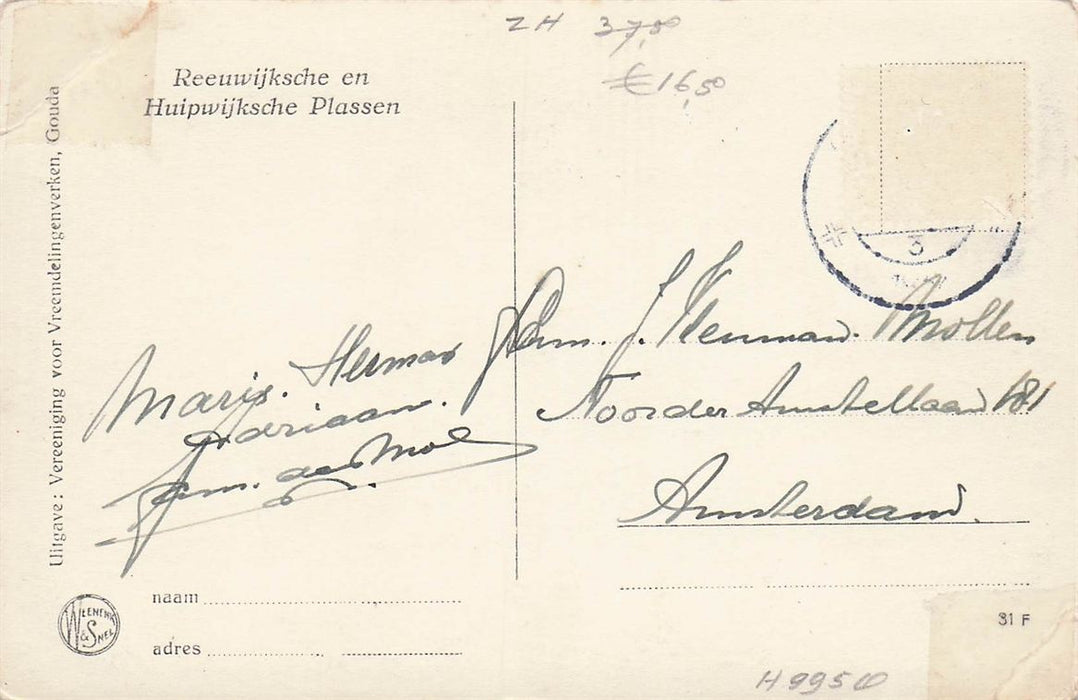 ZH 37,50
€16,50
Reeuwijksche en
Huipwijksche Plassen
Uitgave: Vereeniging voor Vreemdelingenverken, Gouda
3
Marijs. Herman
Adriaan.
Fam. J. Neuman. Mollen
Noorder Amstellaan 181
Amsterdam.
naam
adres
WEENENK
& SNEL
31 F
H9950